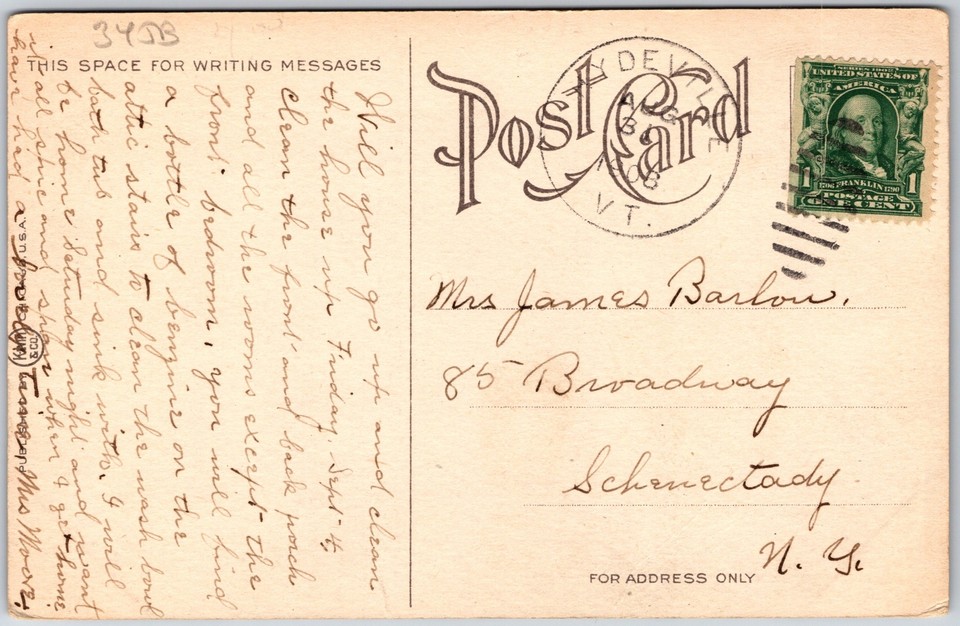 34JB
THIS SPACE FOR WRITING MESSAGES
Will you go up and clean
the house up Friday, Sept 4,
clean the front and back porch
and all the rooms except the
front bedroom, you will find
a bottle of benzine on the
attic stairs to clean the wash bowl
bath tub and sink with. I will
be home Saturday night and want
it all nice and when I get home
have had a time Mrs Moore.
PUBLISHED BY
& CO.
U.S.A.
Post Card
HYDEVILLE
AUG
1908
VT.
SERIES 1902
UNITED STATES OF
AMERICA
1 1706 FRANKLIN 1790 1
POSTAGE
ONE CENT
Mrs James Barlow.
85 Broadway
Schenectady
N. Y.
FOR ADDRESS ONLY